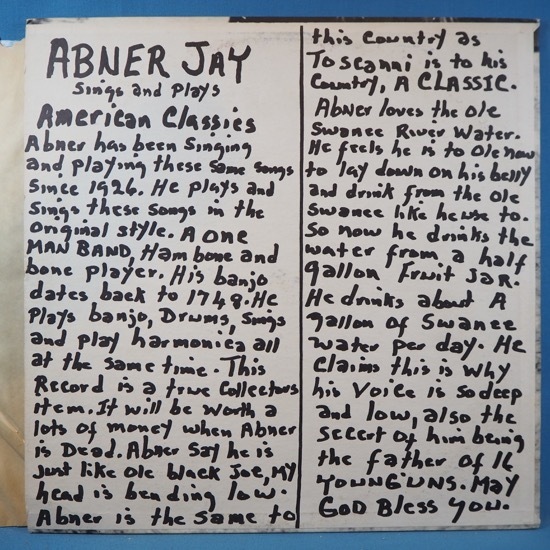 ABNER JAY
Sings and Plays
American Classics
Abner has been Singing
and playing these same songs
Since 1926. He plays and
Sings these Songs in the
original style. A one
MAN BAND, Ham bone and
bone player. His banjo
dates back to 1748. He
Plays banjo, Drums, Sings
and play harmonica all
at the same time. This
Record is a true Collectors
item. It will be worth a
lots of money when Abner
is Dead. Abner Say he is
Just like ole black Joe, MY
head is bending low.
Abner is the Same to
this Country as
Toscanni is to his
Country, A CLASSIC.
Abner loves the ole
Swanee River Water.
He feels he is to Ole now
to lay down on his belly
and drink from the ole
Swanee like he use to.
So now he drinks the
water from a half
gallon Fruit JAR.
He drinks about A
gallon of Swanee
water per day. He
Claims this is why
his Voice is so deep
and low, also the
Secert of him being
the father of 16
YOUNG'UNS. MAY
GOD Bless You.